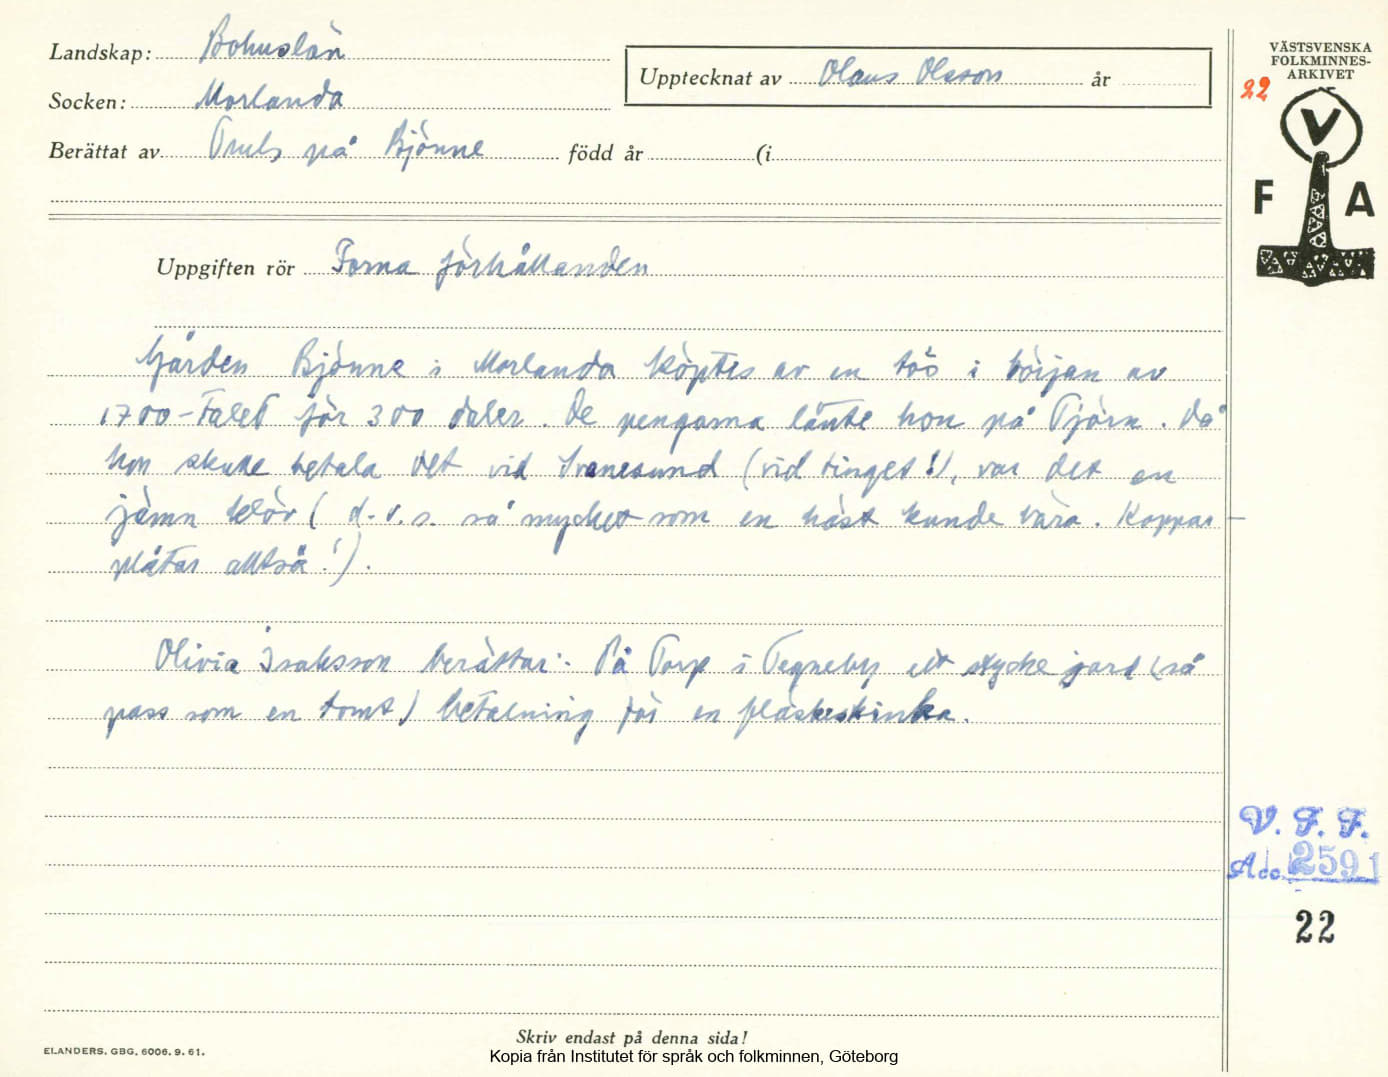 Landskap: Bohuslän
Socken: Morlanda
Berättat av Truls på Bjönne född år (i
Upptecknat av Olaus Olsson år
VÄSTSVENSKA
FOLKMINNES-
ARKIVET
22
V
F A
Uppgiften rör Forna förhållanden
Gården Bjönne i Morlanda köptes av en tös i början av
1700-talet för 300 daler. De pengarna lånte hon på Tjörn. Då
hon skulle betala det vid Svanesund (vid tinget!), var det en
jämn klöv (d.v.s. så mycket som en häst kunde bära. Koppar-
plåtar alltså!).
Olivia Isaksson berättar: På Torp i Tegneby ett stycke jord (så
pass som en tomt) betalning för en fläskeskinka.
V. F. F.
Acc. 2591
22
Skriv endast på denna sida!
ELANDERS, GBG, 6006. 9. 61.
Kopia från Institutet för språk och folkminnen, Göteborg